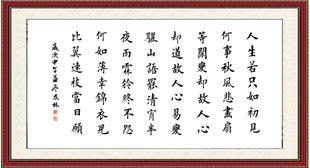 人生若只如初見
何事秋風悲畫扇
等閑變却故人心
却道故人心易變
驪山語罷清宵半
夜雨霖鈴終不怨
何如薄幸錦衣兒
比翼連枝當日願
歲次甲午